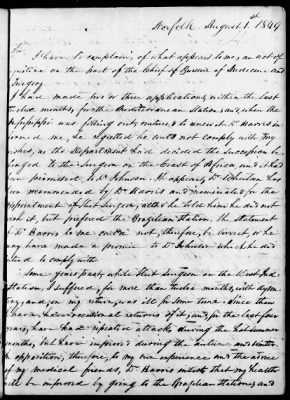 Norfolk August 1st 1849
Sir
I have to complain of what appears to me, an act of
injustice on the part of the Chief of Bureau of Medicine and
Surgery.
I had made two or three applications, within the last
twelve months, for the Mediterranean Station, and when the
Mississippi was fitting out, renewed, Dr Harris in
formed me, he regretted he could not comply with my
wishes, as the Department had decided the Succession be
longed to the Surgeon on the Coast of Africa and it had
been promised, to Dr Johnson. It appears, Dr Johnson has
been recommended by Dr Harris and nominated for the
appointment of Fleet Surgeon, after he told him he did not
wish it, but preferred the Brazilian Station. The Statement
of Dr Harris to me could not, therefore, be correct, or he
may have made a promise to Dr Johnson which he did
intend to comply with
Some years past, while Fleet Surgeon on the West Ind.
Station, I suffered, for more than twelve months, with dysen
tery, and, on my return, was ill for some time. Since then
I have had occasional returns of it, and, for the last four
years, have had repeated attacks during the hot summer
months, but have improved during the Autumn and winter.
In opposition, therefore, to my own experience and the advice
of my medical friends, Dr Harris insists that my health
will be improved by going to the Brazilian Station, and